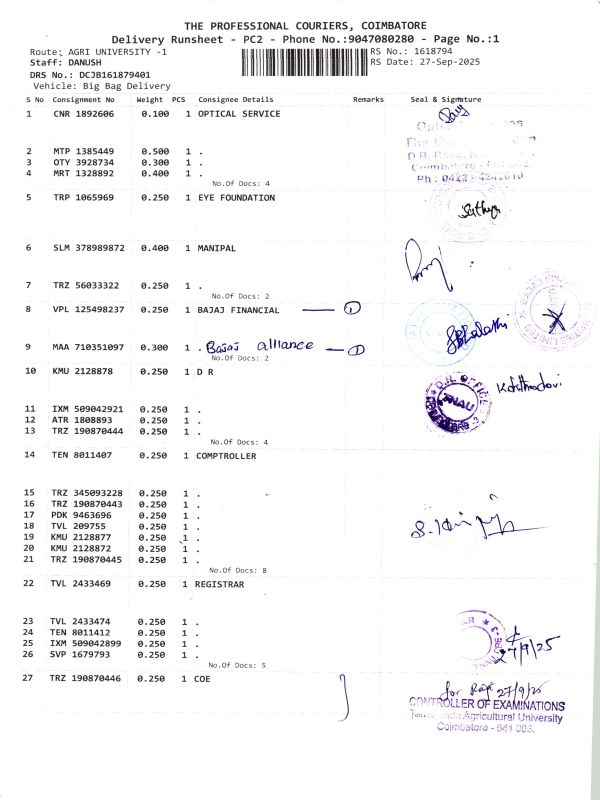 THE PROFESSIONAL COURIERS, COIMBATORE
Delivery Runsheet - PC2 - Phone No.:9047080280 - Page No.:1
Route: AGRI UNIVERSITY -1
RS No.: 1618794
Staff: DANUSH
RS Date: 27-Sep-2025
DRS No.: DCJB161879401
Vehicle: Big Bag Delivery
S No Consignment No Weight PCS Consignee Details Remarks Seal & Signature
1 CNR 1892606 0.100 1 OPTICAL SERVICE
2 MTP 1385449 0.500 1 .
3 OTY 3928734 0.300 1 .
4 MRT 1328892 0.400 1 .
No.Of Docs: 4
5 TRP 1065969 0.250 1 EYE FOUNDATION
Sathya
6 SLM 378989872 0.400 1 MANIPAL
7 TRZ 56033322 0.250 1 .
No.Of Docs: 2
8 VPL 125498237 0.250 1 BAJAJ FINANCIAL — 1
9 MAA 710351097 0.300 1 . Bajaj alliance — 1
No.Of Docs: 2
10 KMU 2128878 0.250 1 D R
11 IXM 509042921 0.250 1 .
12 ATR 1808893 0.250 1 .
13 TRZ 190870444 0.250 1 .
No.Of Docs: 4
14 TEN 8011407 0.250 1 COMPTROLLER
15 TRZ 345093228 0.250 1 .
16 TRZ 190870443 0.250 1 .
17 PDK 9463696 0.250 1 .
18 TVL 209755 0.250 1 .
19 KMU 2128877 0.250 1 .
20 KMU 2128872 0.250 1 .
21 TRZ 190870445 0.250 1 .
No.Of Docs: 8
22 TVL 2433469 0.250 1 REGISTRAR
23 TVL 2433474 0.250 1 .
24 TEN 8011412 0.250 1 .
25 IXM 509042899 0.250 1 .
26 SVP 1679793 0.250 1 .
27/9/25
No.Of Docs: 5
27 TRZ 190870446 0.250 1 COE
for 27/9/25
CONTROLLER OF EXAMINATIONS
Agricultural University
Coimbatore - 641 003.